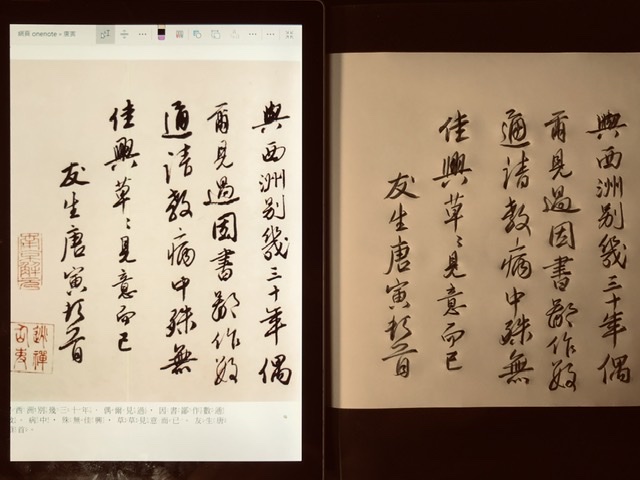 網頁 onenote » 唐寅
與西洲別幾三十年偶
爾見過因書鄙作數
通請教病中殊無
佳興草〻見意而已
友生唐寅頓首
西洲別幾三十年、偶爾見過,因書鄙作數通
病中,殊無佳興,草草見意而已、友生唐
首。
與西洲別幾三十年偶
爾見過因書鄙作數
通請教病中殊無
佳興草〻見意而已
友生唐寅頓首